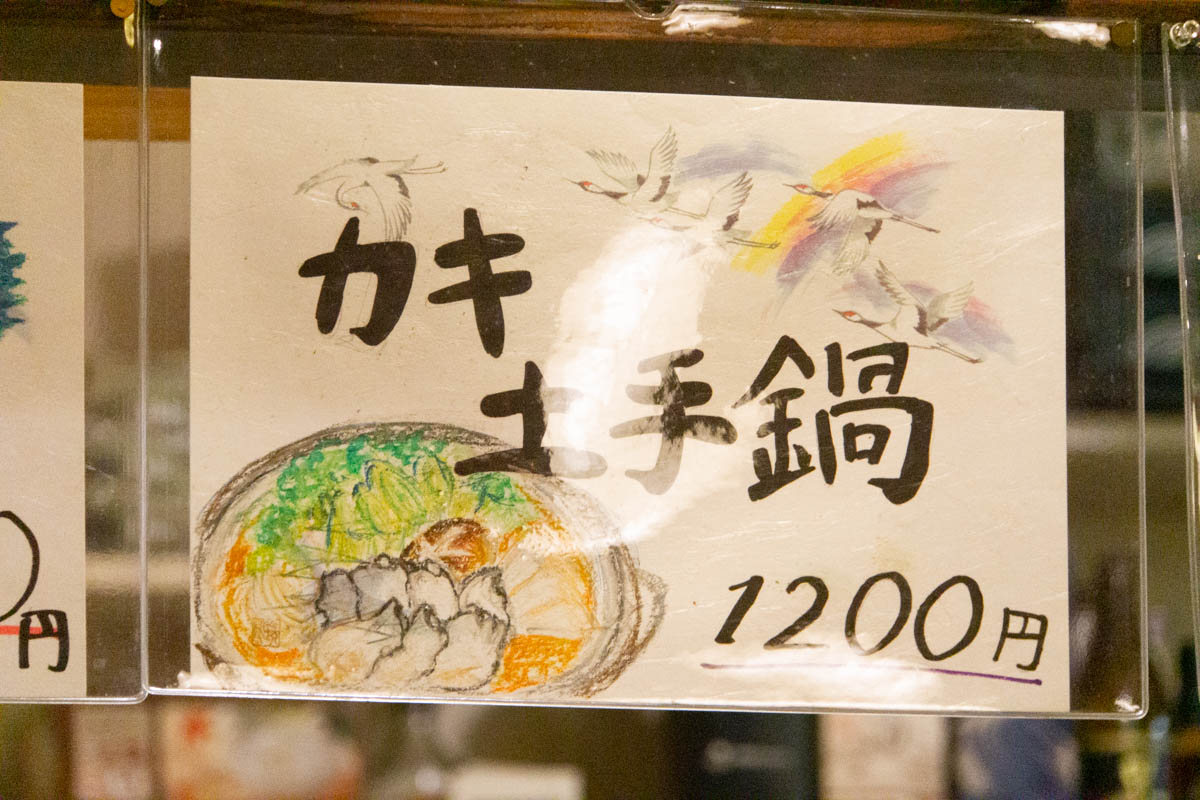 カキ
土手鍋
1200円
円